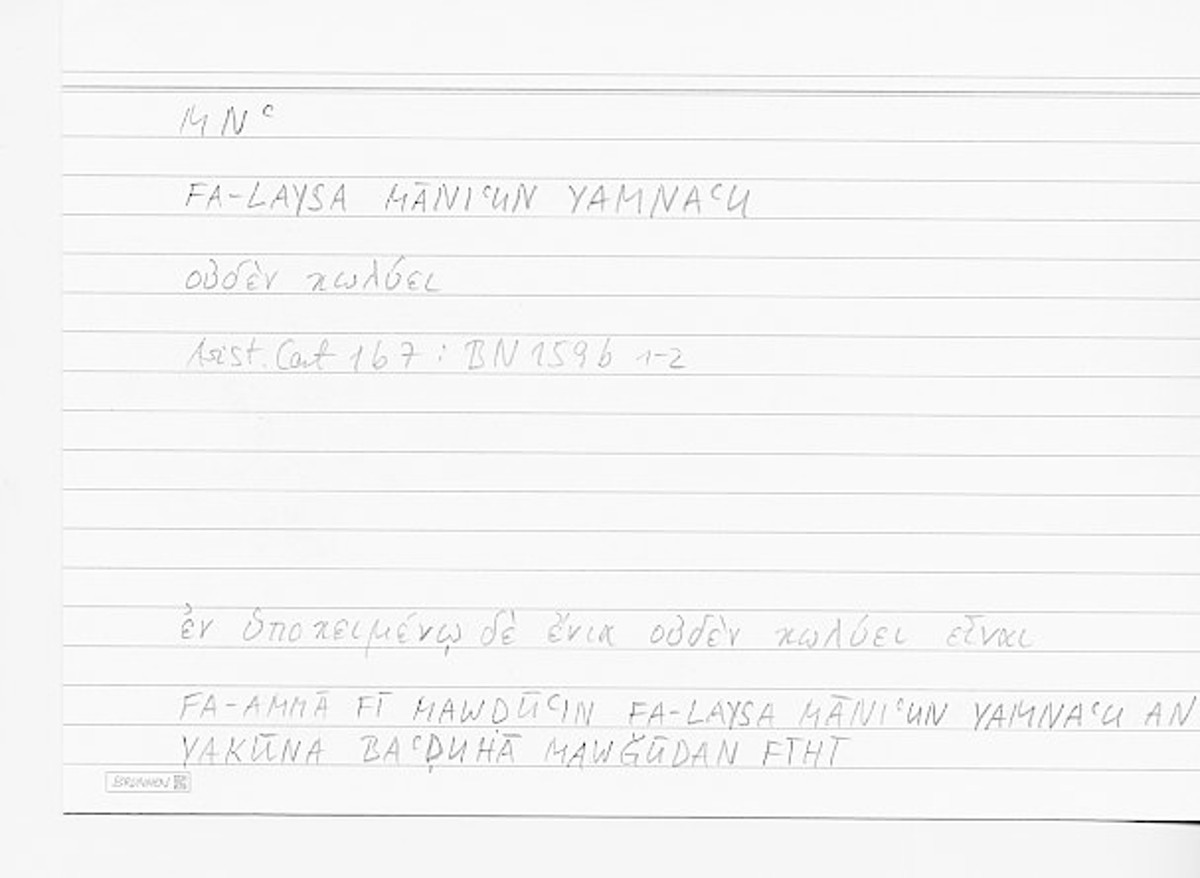 MNʿ
FA-LAYSA MĀNIʿUN YAMNAʿU
οὐδὲν κωλύει
Arist. Cat 1b7 : BN 159b 1-2
ἐν ὑποκειμένῳ δὲ ἔνια οὐδὲν κωλύει εἶναι
FA-AMMĀ FĪ MAWḌŪʿIN FA-LAYSA MĀNIʿUN YAMNAʿU AN
YAKŪNA BAʿḌUHĀ MAWǦŪDAN FĪHĪ
BRUNNEN